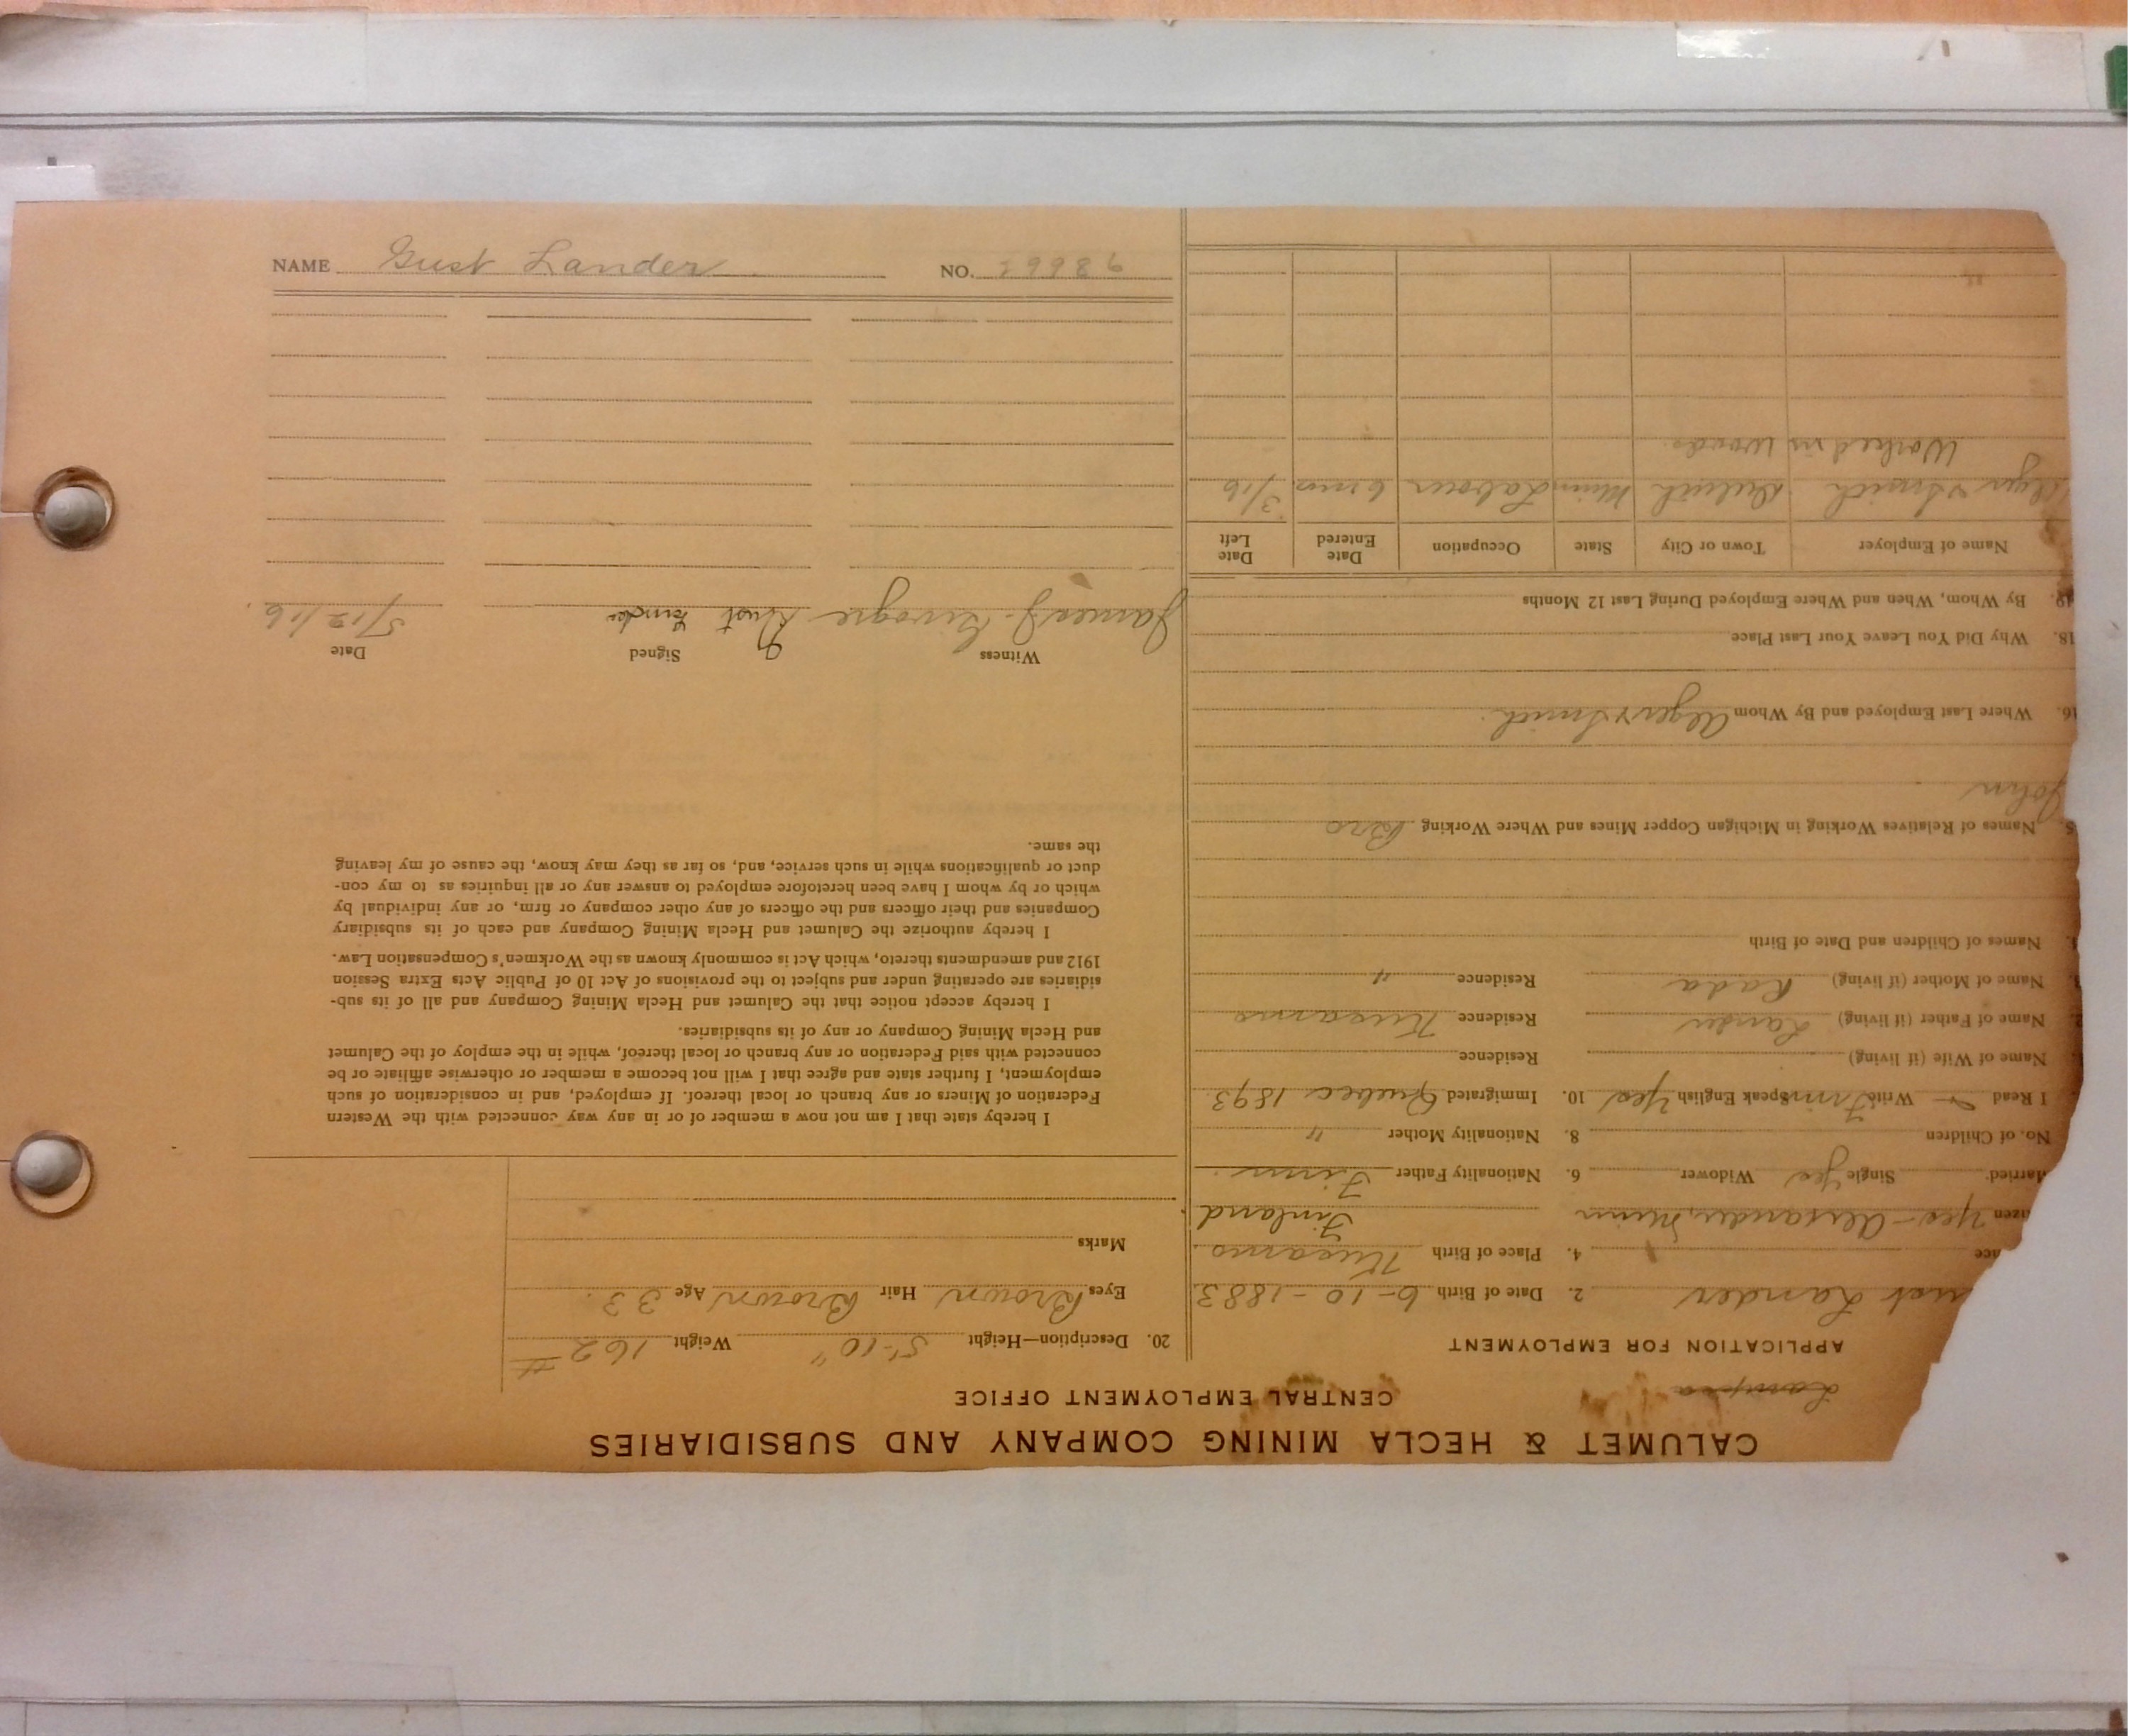 CALUMET & HECLA MINING COMPANY AND SUBSIDIARIES
CENTRAL EMPLOYMENT OFFICE
APPLICATION FOR EMPLOYMENT
Lander 2. Date of Birth 6-10-1883
4. Place of Birth
Yes - Minn Finland
Married Single Yes Widower 6. Nationality Father Finn
No. of Children 8. Nationality Mother "
I Read Write Finn Speak English Yes 10. Immigrated Quebec 1893
Name of Wife (if living) Residence
Name of Father (if living) Lander Residence
Name of Mother (if living) Kada Residence "
Names of Children and Date of Birth
Names of Relatives Working in Michigan Copper Mines and Where Working Bro
John
16. Where Last Employed and By Whom Alger & Smith
18. Why Did You Leave Your Last Place
19. By Whom, When and Where Employed During Last 12 Months
Name of Employer Town or City State Occupation Date Entered Date Left
Alger & Smith Duluth Minn Labour 6 mos 3/16
Worked in Woods
20. Description—Height 5'-10" Weight 162 #
Eyes Brown Hair Brown Age 33
Marks
I hereby state that I am not now a member of or in any way connected with the Western
Federation of Miners or any branch or local thereof. If employed, and in consideration of such
employment, I further state and agree that I will not become a member or otherwise affiliate or be
connected with said Federation or any branch or local thereof, while in the employ of the Calumet
and Hecla Mining Company or any of its subsidiaries.
I hereby accept notice that the Calumet and Hecla Mining Company and all of its sub-
sidiaries are operating under and subject to the provisions of Act 10 of Public Acts Extra Session
1912 and amendments thereto, which Act is commonly known as the Workmen's Compensation Law.
I hereby authorize the Calumet and Hecla Mining Company and each of its subsidiary
Companies and their officers and the officers of any other company or firm, or any individual by
which or by whom I have been heretofore employed to answer any or all inquiries as to my con-
duct or qualifications while in such service, and, so far as they may know, the cause of my leaving
the same.
Witness Signed Date
James J. Gust 5/12/16
NAME Gust Lander NO. 29986